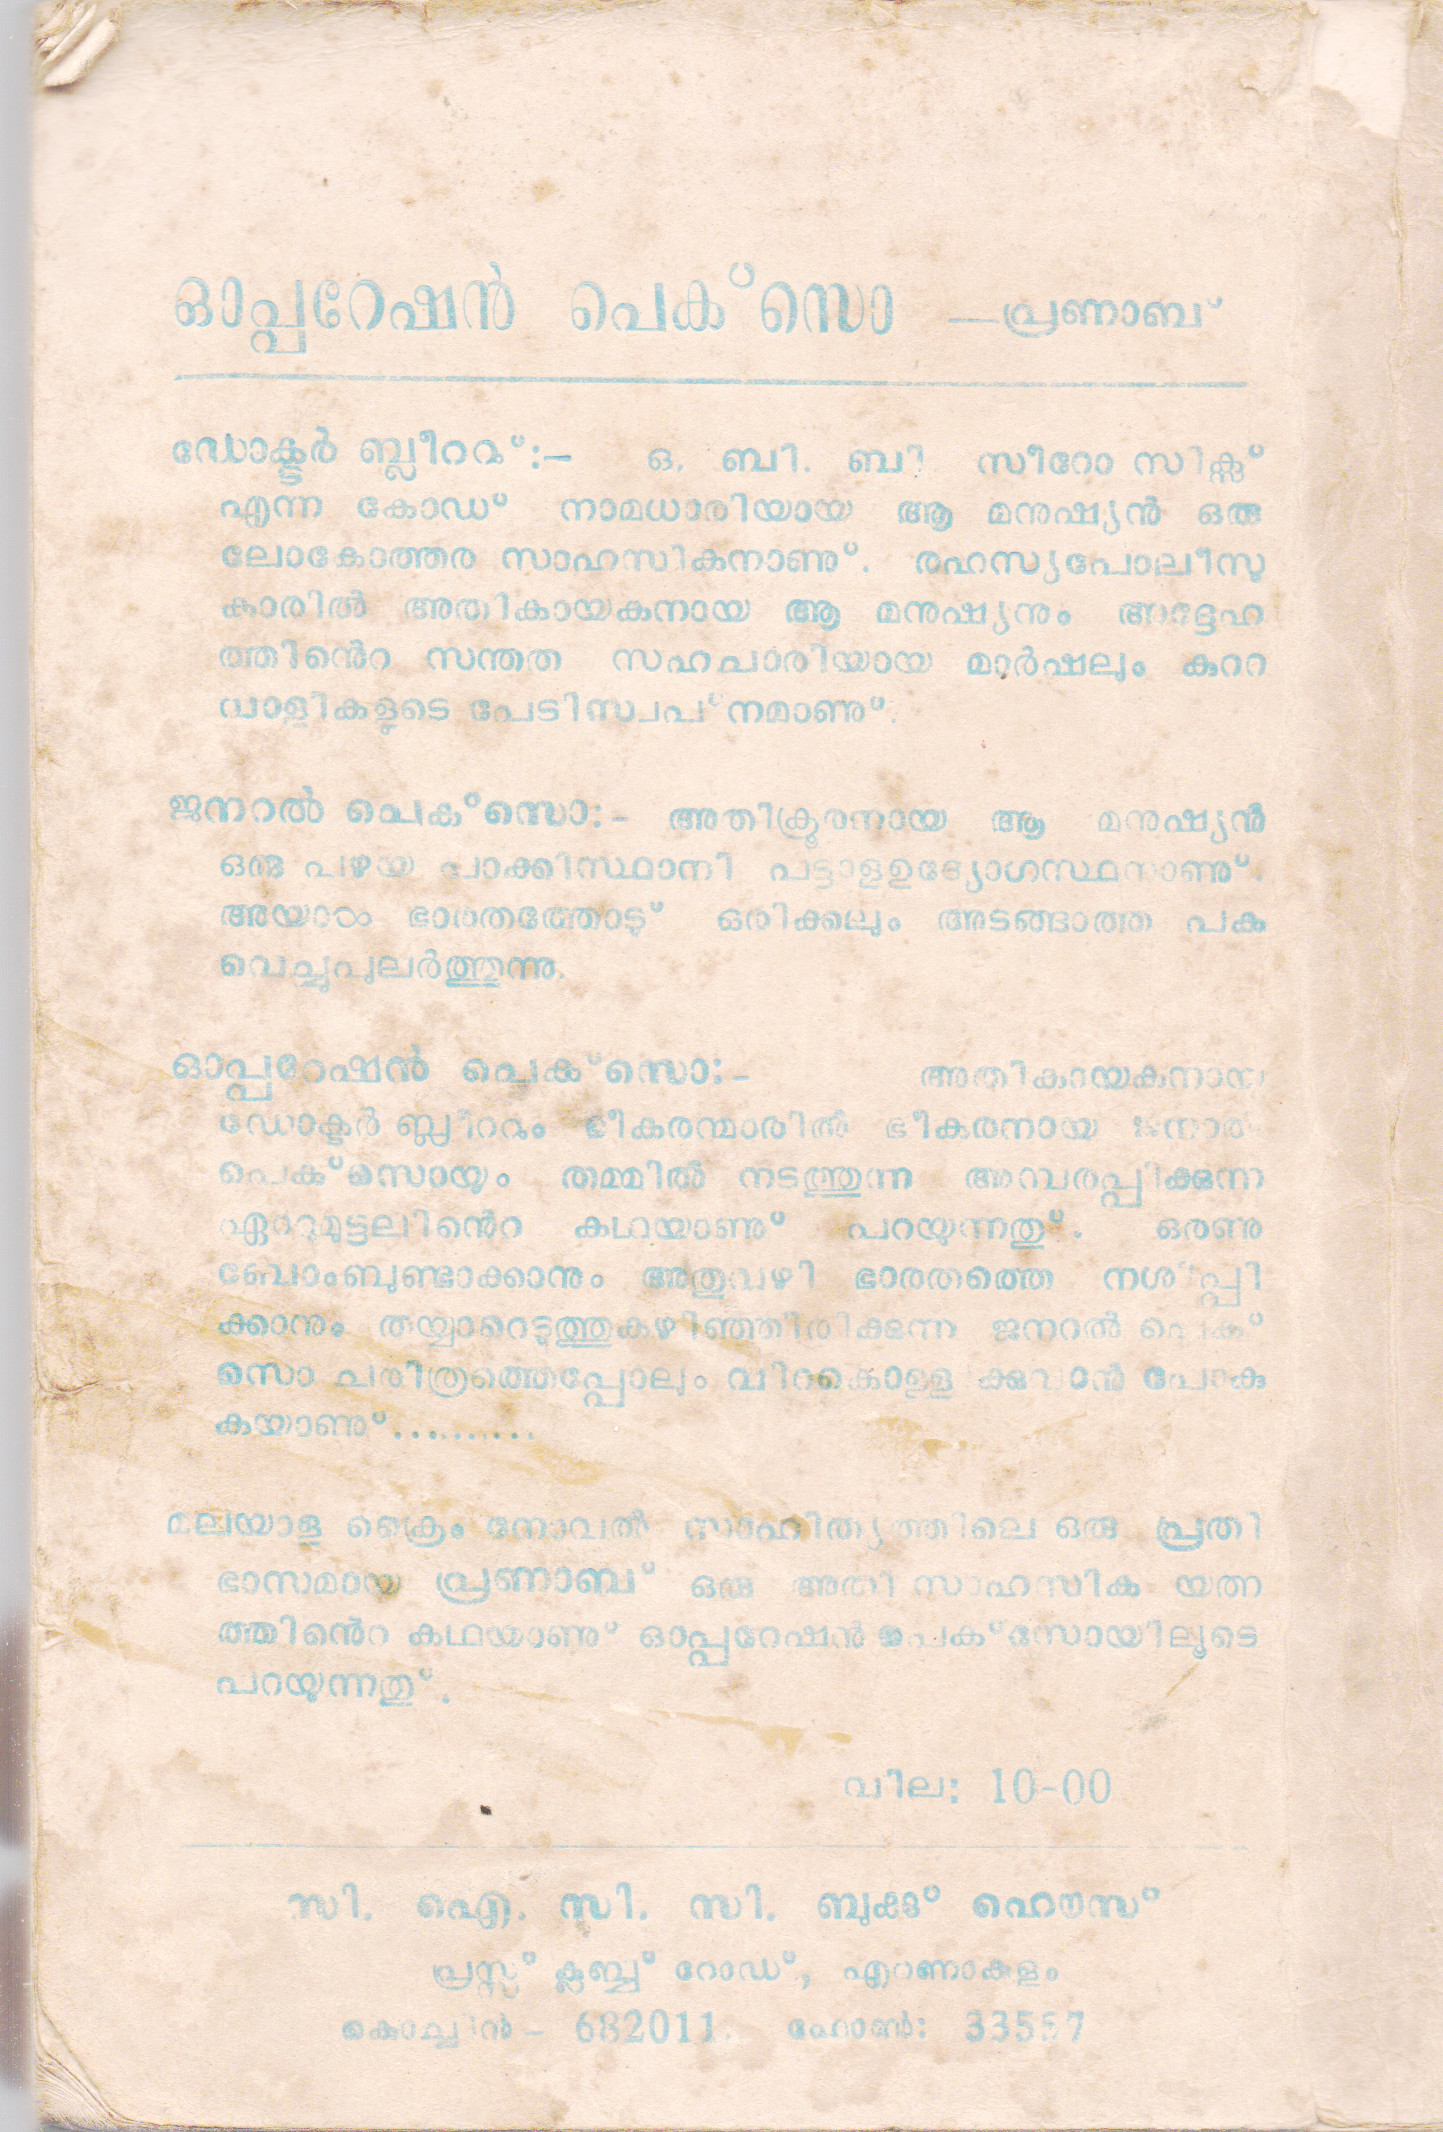 ഓപ്പറേഷൻ പെക്സൊ —പ്രണാബ്
ഡോക്ടർ ബ്ലീററ്:— ഒ. ബി. ബി സീറോ സിക്സ്
എന്ന കോഡ് നാമധാരിയായ ആ മനുഷ്യൻ ഒരു
ലോകോത്തര സാഹസികനാണു്. രഹസ്യപോലീസു
കാരിൽ അതികായകനായ ആ മനുഷ്യനും അദ്ദേഹ
ത്തിൻെറ സന്തത സഹചാരിയായ മാർഷലും കുററ
വാളികളുടെ പേടിസ്വപ്നമാണു്.
ജനറൽ പെക്സൊ:- അതിക്രൂരനായ ആ മനുഷ്യൻ
ഒരു പഴയ പാക്കിസ്ഥാനി പട്ടാളഉദ്യോഗസ്ഥനാണു്.
അയാൾ ഭാരതത്തോടു് ഒരിക്കലും അടങ്ങാത്ത പക
വെച്ചുപുലർത്തുന്നു.
ഓപ്പറേഷൻ പെക്സൊ:- അതികായകനായ
ഡോക്ടർ ബ്ലീററും ഭീകരന്മാരിൽ ഭീകരനായ ജനറൽ
പെക്സൊയും തമ്മിൽ നടത്തുന്ന അമ്പരപ്പിക്കുന്ന
ഏററുമുട്ടലിൻെറ കഥയാണു് പറയുന്നതു്. ഒരണു
ബോംബുണ്ടാക്കാനും അതുവഴി ഭാരതത്തെ നശിപ്പി
ക്കാനും തയ്യാറെടുത്തുകഴിഞ്ഞിരിക്കുന്ന ജനറൽ പെക്
സൊ ചരിത്രത്തെപ്പോലും വിറകൊള്ളിക്കുവാൻ പോകു
കയാണു്..........
മലയാള ക്രൈം നോവൽ സാഹിത്യത്തിലെ ഒരു പ്രതി
ഭാസമായ പ്രണാബ് ഒരു അതി സാഹസിക യത്ന
ത്തിൻെറ കഥയാണു് ഓപ്പറേഷൻ പെക്സോയിലൂടെ
പറയുന്നതു്.
വില: 10-00
സി. ഐ. സി. സി. ബുക്കു് ഹൌസ്
പ്രസ്സ് ക്ലബ്ബ് റോഡ്, എറണാകുളം
കൊച്ചിൻ – 682011. ഫോൺ: 33557